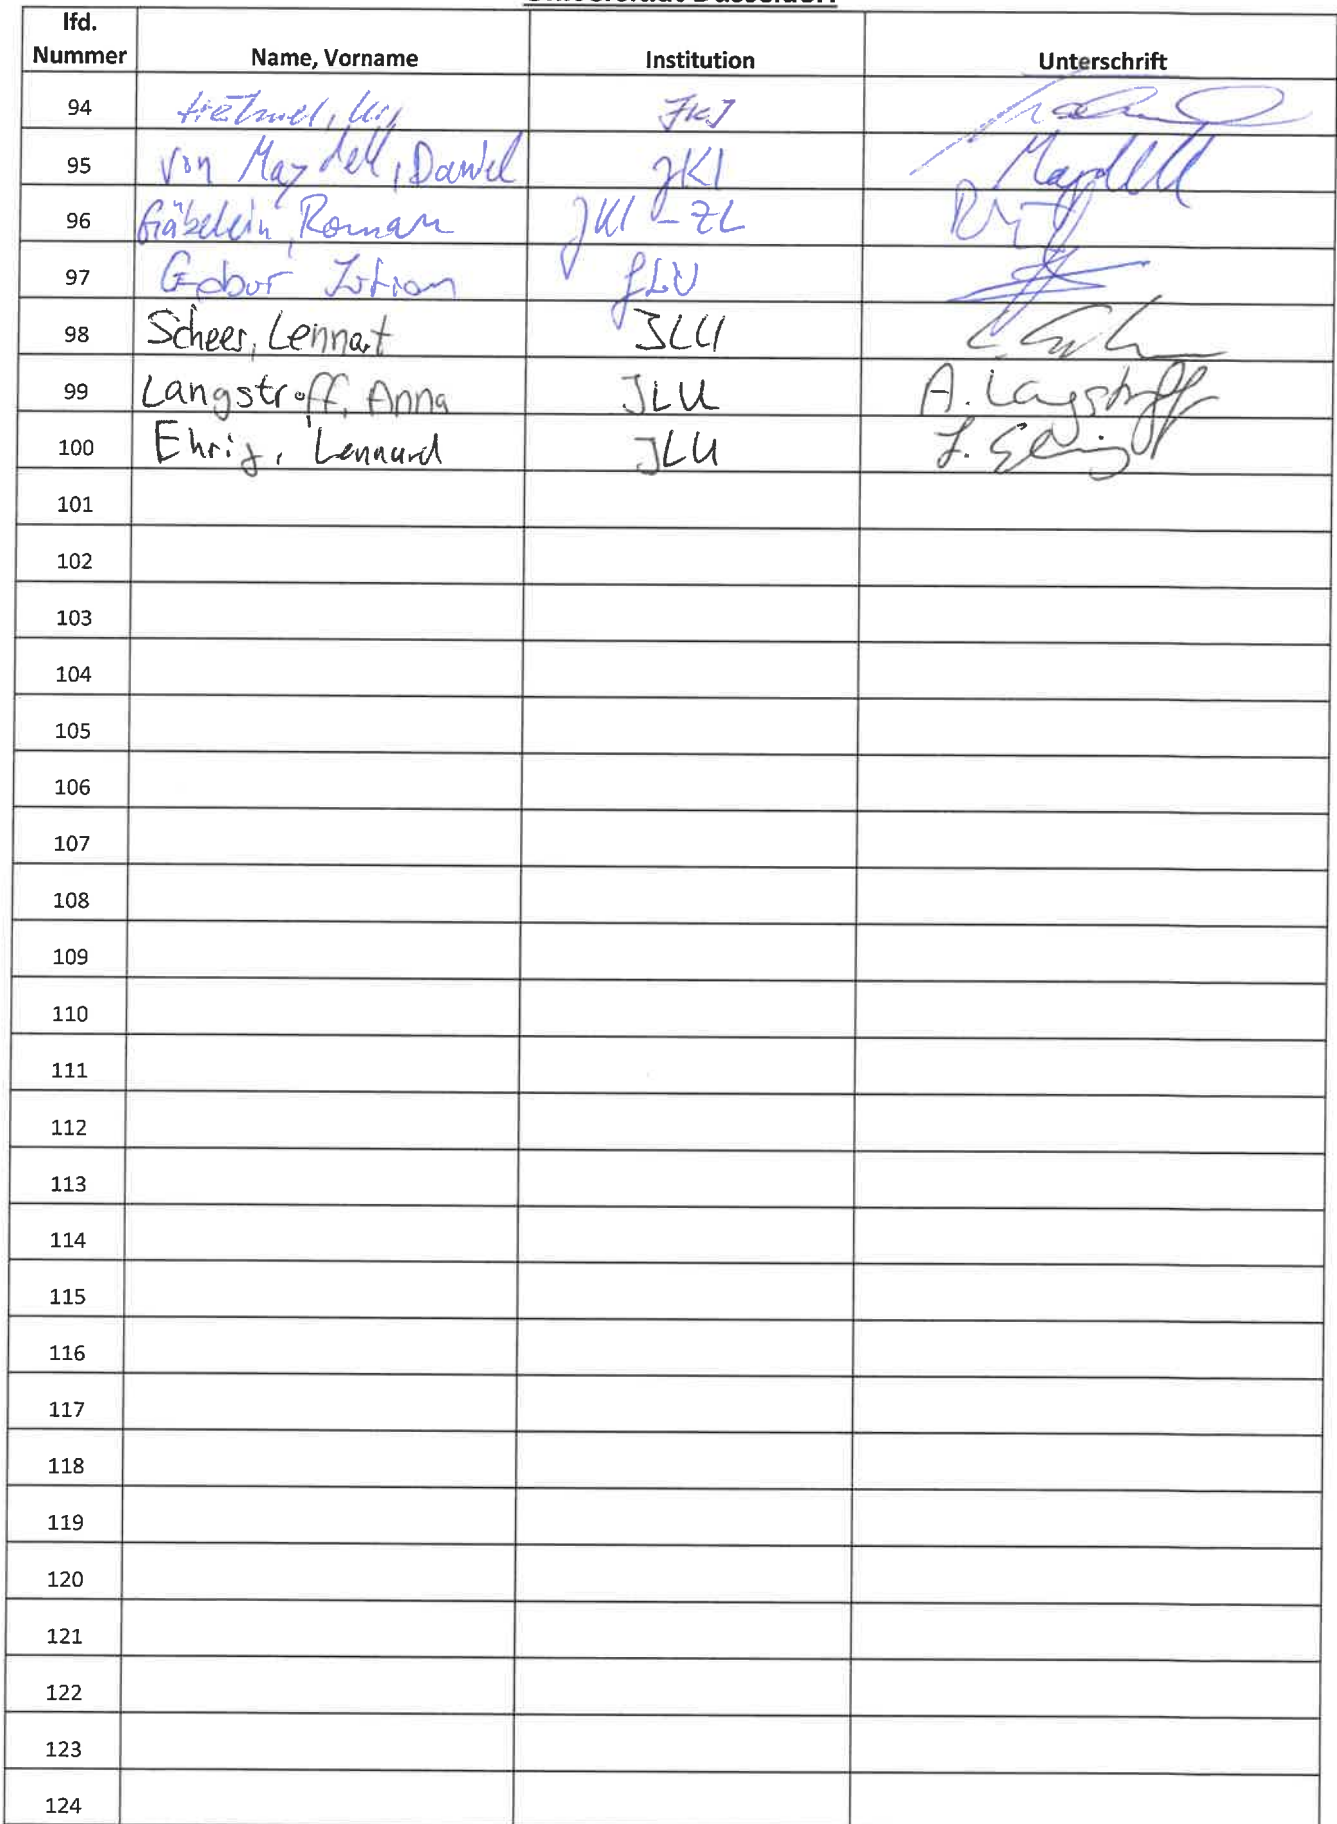 lfd. Nummer Name, Vorname Institution Unterschrift
94 JKI
95 von Maydell, Daniel JKI Maydell
96 Gräbelein, Roman JKI - ZL
97 Gabur Iulian JLU
98 Scheer, Lennart JLU
99 Langstroff, Anna JLU A. Langstroff
100 Ehrig, Lennard JLU L. Ehrig
101
102
103
104
105
106
107
108
109
110
111
112
113
114
115
116
117
118
119
120
121
122
123
124